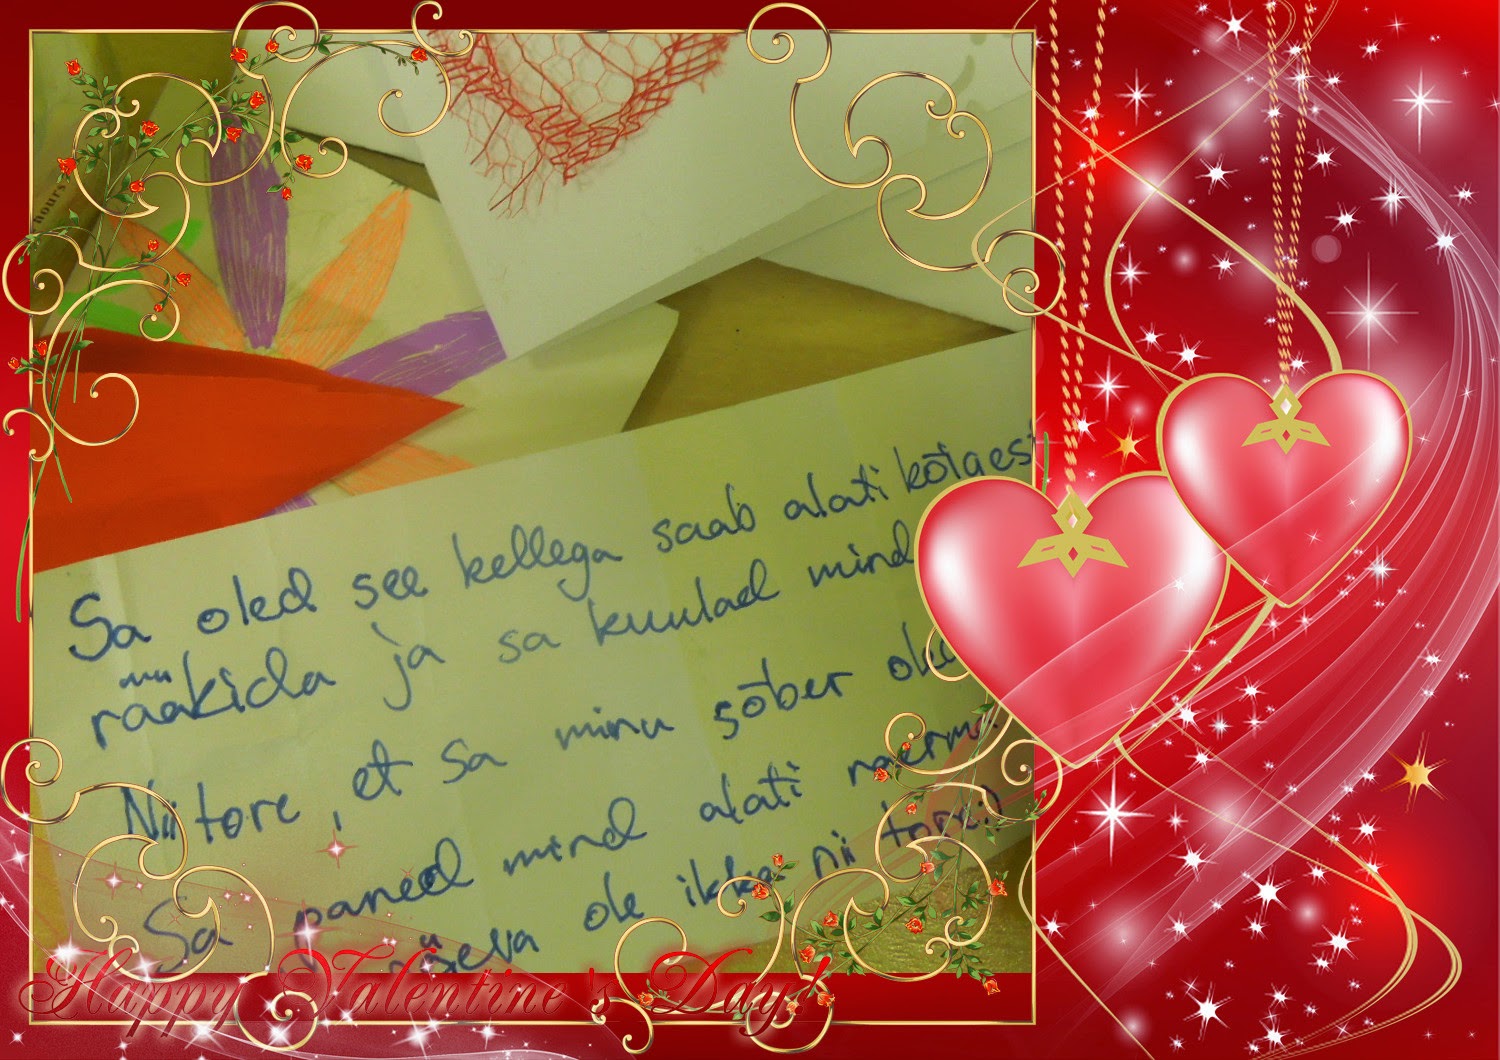 hours
Sa oled see kellega saab alati kõigest
rääkida ja sa kuulad mind
Nii tore, et sa minu sõber oled
Sa paned mind alati naerma
ole ikka nii tore:)
Happy Valentine's Day!